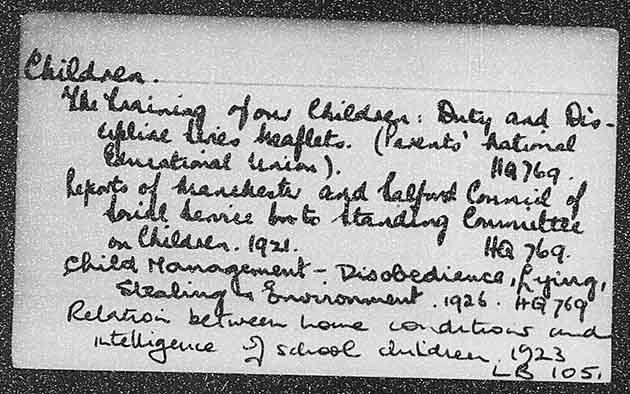 Children.
The Training of our Children: Duty and Dis-
cipline Series Leaflets. (Parents' National
Educational Union). HQ 769.
Reports of Manchester and Salford Council of
Social Service to Standing Committee
on Children. 1921. HQ 769.
Child Management - Disobedience, Lying,
Stealing & Environment. 1926. HQ 769
Relation between home conditions and
intelligence of school children. 1923
LB 105.